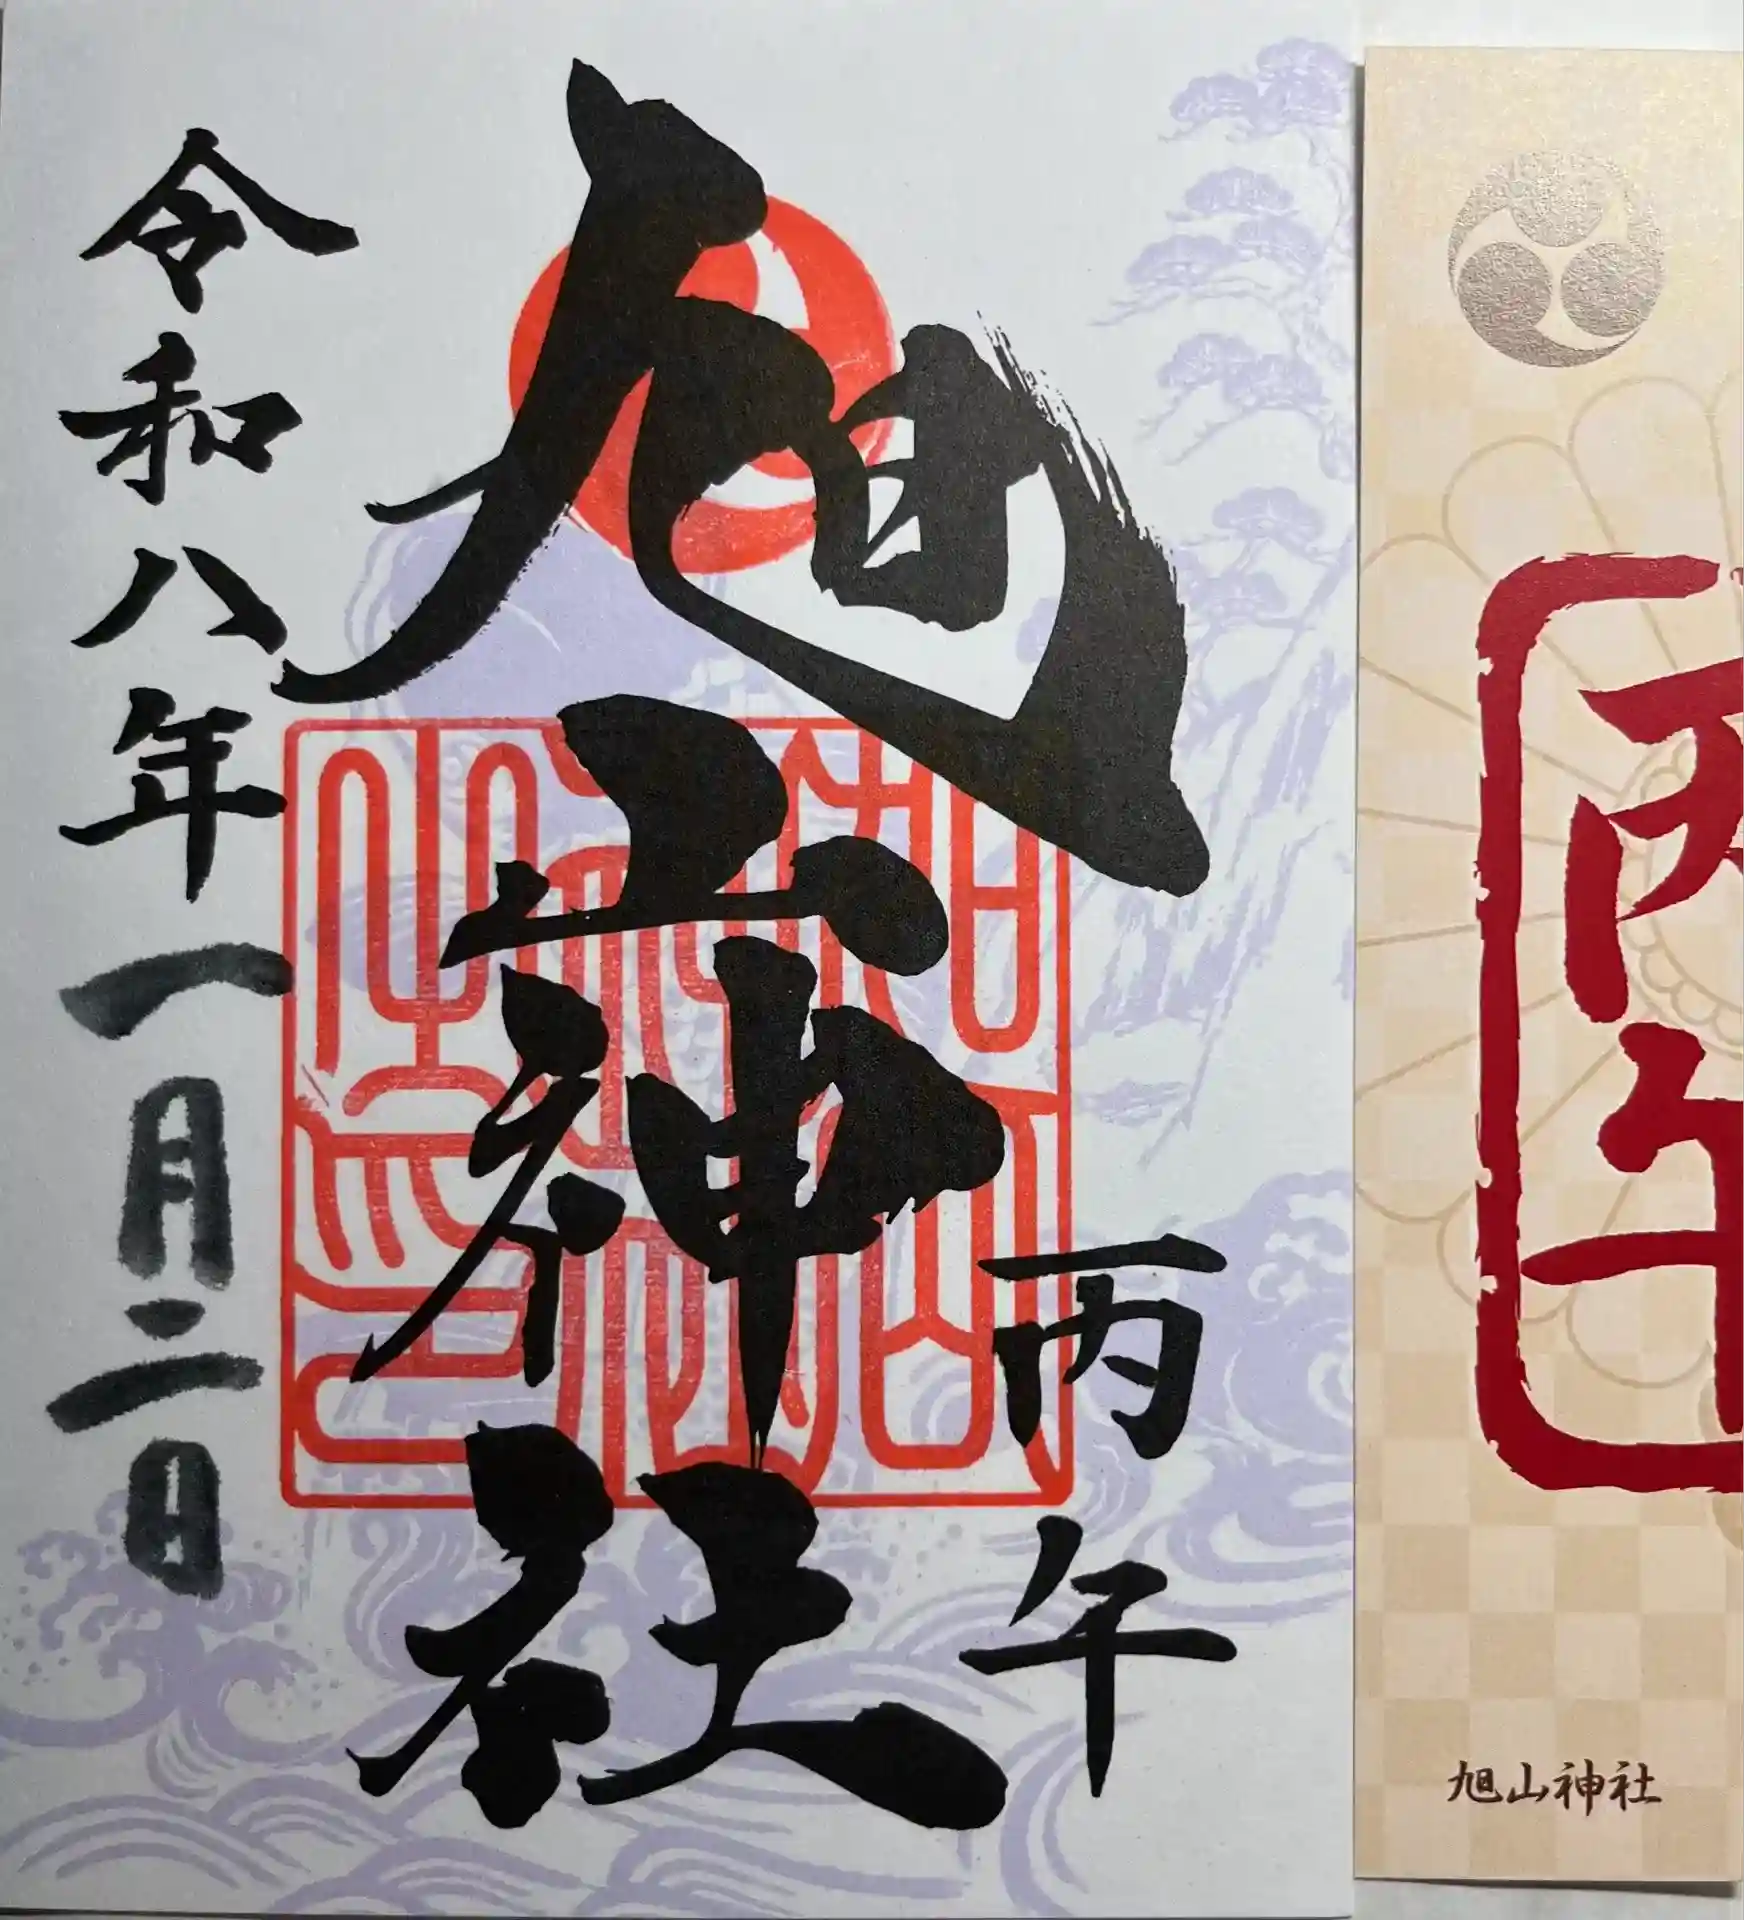 丙午
旭山神社
令和八年一月二日
丙午
旭山神社